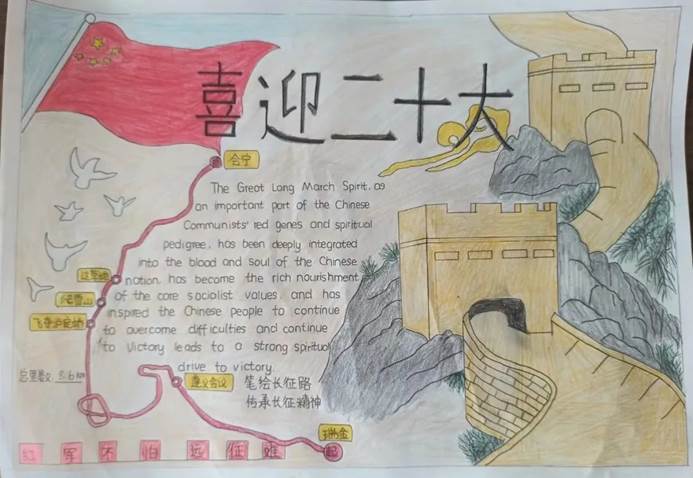 喜迎二十大
会宁
The Great Long March Spirit. as
an important part of the Chinese
Communists' red genes and spiritual
pedigree. has been deeply integrated
into the blood and soul of the Chinese
nation. has become the rich nourishment
of the core socialist values and has
inspired the Chinese people to continue
to overcome difficulties and continue
to Victory leads to a strong spiritual
drive to victory
过草地
爬雪山
飞夺泸定桥
总里数:
遵义会议
笔绘长征路
传承长征精神
瑞金
起
红军不怕远征难